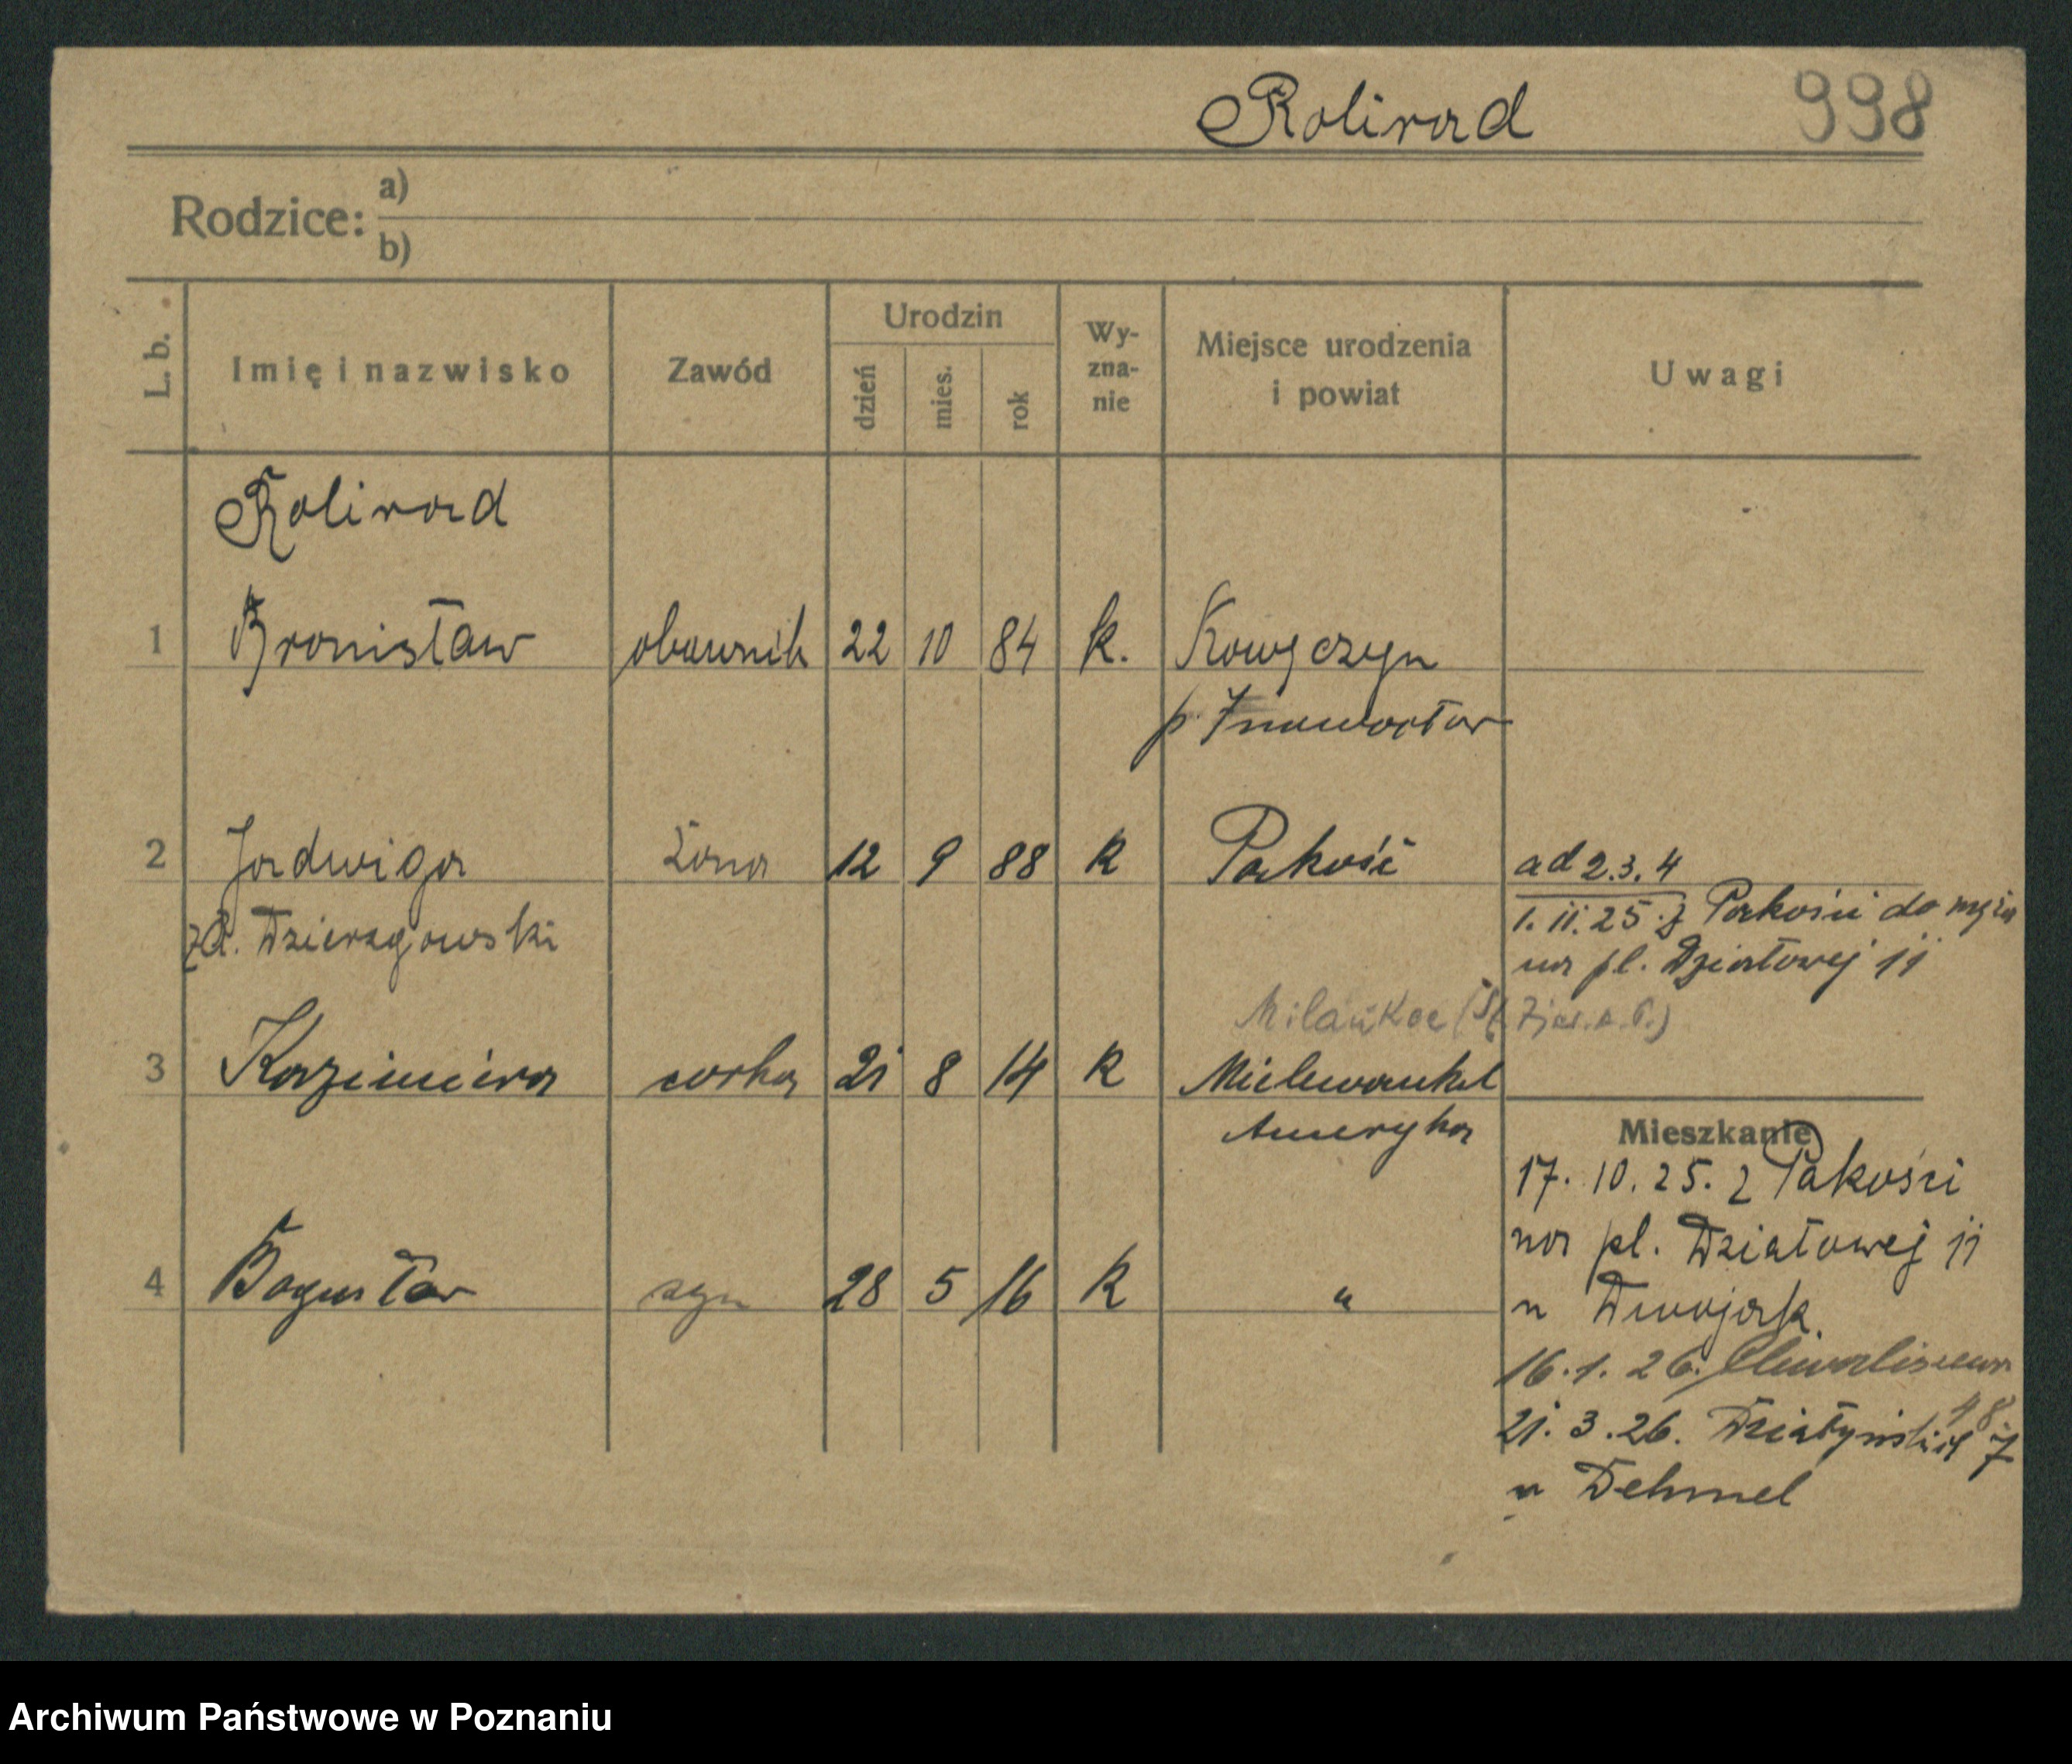 Rolirad 998
Rodzice: a)
b)
L. b. Imię i nazwisko Zawód Urodzin dzień mies. rok Wy-zna-nie Miejsce urodzenia i powiat Uwagi
Rolirad
1 Bronisław 22 10 84 k.
p. Inowrocław
2 Jadwiga żona 12 9 88 k Pakość ad 2.3.4
1. 11. 25. z Pakości do męża
zd. Dzierzgowski na pl. Działowej 11
3 Kazimiera corka 21 8 14 k
Ameryka
Mieszkanie
17. 10. 25. z Pakości
na pl. Działowej 11
4 Bogusław syn 28 5 16 k "
u Dwojak.
16. 1. 26. Chwaliszewo
48.
21. 3. 26. Działyńskich 7
u Dehmel
Archiwum Państwowe w Poznaniu